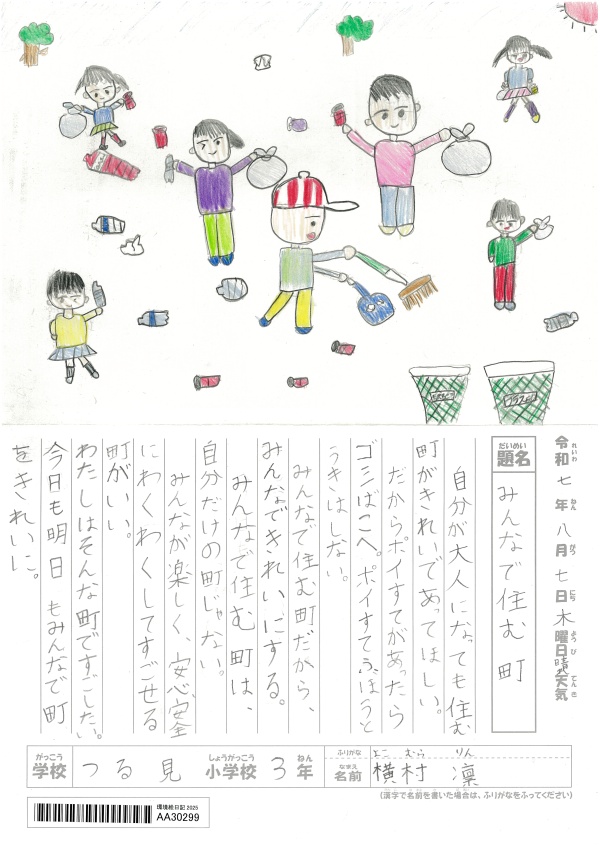 令和七年八月七日木曜日晴天気
れいわ ねん がつ にち ようび てんき
だいめい
題名
みんなで住む町
自分が大人になっても住む
町がきれいであってほしい。
だからポイすてがあったら
ゴミばこへ。ポイすて、ふほうと
うきはしない。
みんなで住む町だから、
みんなできれいにする。
みんなで住む町は、
自分だけの町じゃない。
みんなが楽しく、安心、安全
にわくわくしてすごせる
町がいい。
わたしはそんな町ですごしたい。
今日も明日もみんなで町
をきれいに。
がっこう しょうがっこう ねん
学校 つる見 小学校 3年
ふりがな よこ むら りん
なまえ
名前 横村 凜
(漢字で名前を書いた場合は、ふりがなをふってください)
環境絵日記 2025
AA30299